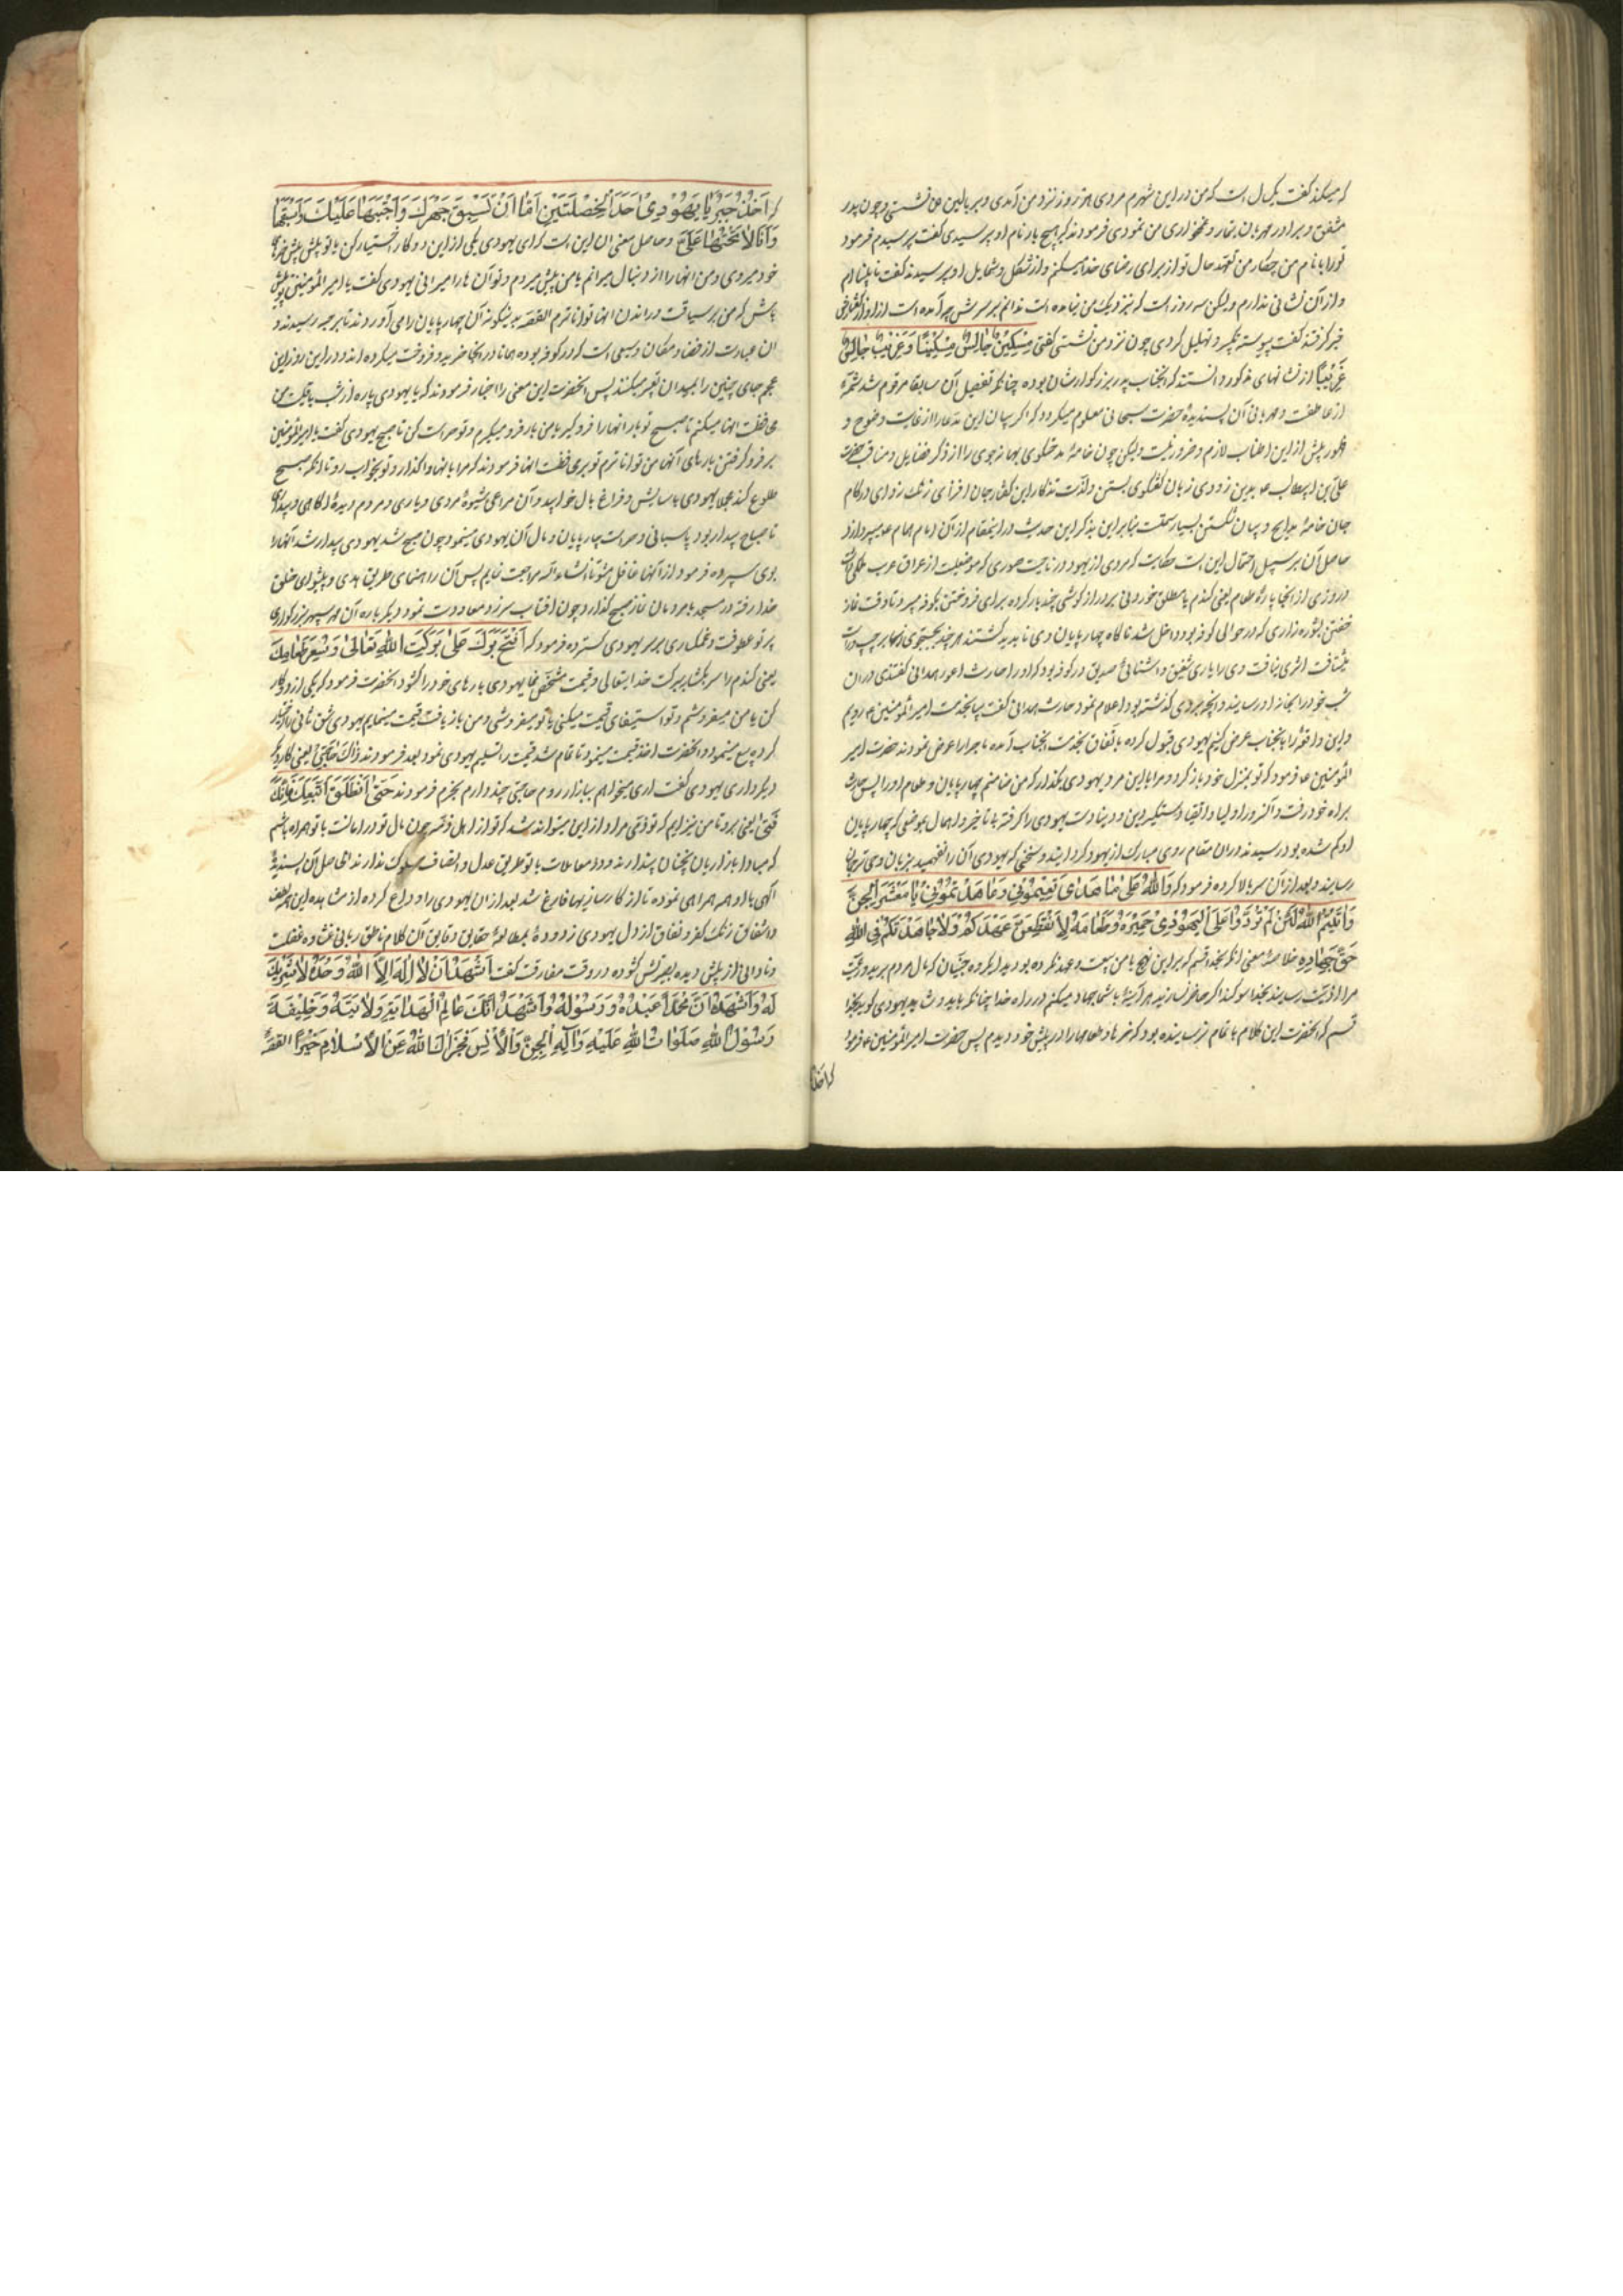 که میکند گفت یکسال است که من در این شهرم مردی هر روز نزد من آمدی و بر بالین من نشستی و چون پدر
مشفق و برادر مهربان تیمار و غمخواری من نمودی فرمودند که هیچ بار نام او پرسیدی گفت پرسیدم فرمود
تو را با نام من چکار من تعهد حال تو از برای رضای خدا میکنم و از شکل و شمایل او پرسیدند گفت نابینا ام
و از آن نشانی ندارم و لیکن سه روز است که نزدیک من نیامده است ندانم بر سرش چه آمده است از او از گفتارش
خبر گرفتند گفت پیوسته تکبیر و تهلیل کردی چون نزد من نشستی گفتی مِسْکِینٌ جَالِسٌ مِسْکِیناً وَ غَرِیبٌ جَالَسَ
غَرِیباً از نشانهای مذکور دانستند که آنجناب پدر بزرگوار ایشان بوده چنانکه تفصیل آن سابقا مرقوم شد شمهٔ
از عاطفت و مهربانی آن پسندیدهٔ حضرت سبحانی معلوم میگردد که اگر چه بیان این مدعا را از غایت وضوح و
ظهور پیش از این اطناب لازم و ضرور نیست و لیکن چون خامهٔ بهانه جوی را از ذکر فضایل و مناقب حضرت
علی بن ابیطالب ع بدین زودی زبان گفتگوی بستن و لذت تذکار این گفتار جان افزای
جان خامهٔ و بیان شکستن بسیار سخت بنابراین بذکر این حدیث در اینمقام از آن امام همام ع میپردازد
حاصل آن بر سبیل اجمال این است حکایت که مردی از یهود در ناحیت سوری که موضعیست از عراق عرب
روزی از آنجا پارهٔ طعام یعنی گندم یا مطلق خوردنی بر دراز گوشی چند بار کرده برای فروختن بکوفه میبرد تا وقت نماز
خفتن بشوره زاری که در حوالی کوفه بود داخل شد ناگاه چهارپایان وی ناپدید گشتند هر چند بجستجوی آنها بر چپ و راست
شتافت اثری نیافت وی را یاری شفیق و آشنائی صدیق در کوفه بود که او را حارث اعور همدانی گفتندی در آن
شب خود را بخانه او رسانید و آنچه بر وی گذشته بود اعلام نمود حارث همدانی گفت بیا بخدمت امیرالمؤمنین ع رویم
و این واقعه را بآنجناب عرض کنیم یهودی قبول کرده باتفاق بخدمت آنجناب آمده ماجرا را عرض نمودند حضرت امیر
المؤمنین ع فرمود که تو بمنزل خود باز گرد و مرا با این مرد یهودی بگذار که من ضامنم چهارپایان و طعام او را پس حارث
براه خود رفت و آن سرور اولیا و اتقیا دستگیر دین و دنیا دست یهودی را گرفته بی تاخیر و اهمال بموضعی که چهارپایان
او گم شده بود رسیدند در آن مقام روی مبارک از یهود گردانید و سخنی که یهودی آن را نفهمید بزبان وحی ترجمان
رسانید و بعد از آن سر بالا کرده فرمود که وَاللّٰهِ مَا عَلَی هٰذَا بَایَعْتُمُونِی وَ عَاهَدْتُمُونِی یَا مَعْشَرَ الْجِنِّ
وَ ایْمُ اللّٰهِ لَئِنْ لَمْ تَرُدُّوا عَلَی الْیَهُودِیِّ حَمِیرَهُ وَ طَعَامَهُ لَأَنْقُضَنَّ عَهْدَکُمْ وَ لَأُجَاهِدَنَّکُمْ فِی اللّٰهِ
حَقَّ جِهَادِهِ خلاصهٔ معنی آنکه بخدا قسم که بر این نهج با من بیعت و عهد نکرده بودید ای گروه جنیان که مال مردم ببرید و رعیت
مرا اذیت رسانید بخدا سوگند اگر حاضر نسازید هر آینه با شما جهاد میکنم در راه خدا چنانکه باید و شاید یهودی گوید بخدا
قسم که آنحضرت این کلام باتمام نرسانیده بود که خرها و طعامها را در پیش خود دیدم پس حضرت امیرالمؤمنین ع فرمود
که اختر
که اَخْتَرْ یَا یَهُودِیُّ اَحَدَ الْخَصْلَتَیْنِ اَمَّا اَنْ تَسُوقَ حَمِیرَکَ وَ اَحُثَّهَا عَلَیْکَ وَ اَسُوقُهَا
وَ اَنَا لَا تَحُثَّهَا عَلَیَّ و حاصل معنی آن این است که ای یهودی یکی از این دو کار اختیار کن یا تو پیش پیش خرهای
خود میروی و من آنها را از دنبال میرانم یا من پیش میروم و تو آن ها را میرانی یهودی گفت یا امیرالمؤمنین تو پیش
باش که من بر سیاقت و راندن آنها تواناترم القصه بدینگونه آن چهارپایان را می آوردند تا برحبه رسیدند و
آن عبارت از فضا و مکان وسیعی است که در کوفه بوده همانا در آنجا خرید و فروخت میکرده اند و در این روز این
عجم جای چنین را بمیدان تعبیر میکنند پس آنحضرت این معنی را اخبار فرمودند که یا یهودی پاره از شب باقیست من
محافظت آنها میکنم تا صبح تو بار آنها را فرو گیر یا من بار فرو میگیرم و تو حراست کن تا صبح یهودی گفت یا امیرالمؤمنین
بر فرو گرفتن بارهای آنها من تواناترم تو بری حفظت آنها فرمودند که مرا با آنها واگذار و تو بخواب رو تا آنکه صبح
طلوع کند علا یهودی بآسایش و فراغ بال خوابید و آن مراعی شیوهٔ مردمی و یاری و مردم دیدهٔ آگاهی و بیداری
تا صباح بیدار بود پاسبانی و حراست چارپایان و مال آن یهودی مینمود چون صبح شد یهودی بیدار شد آنها را
بوی سپرده فرمود از آنها غافل مشو تا انشاء الله مراجعت نمایم پس آن راهنمای طریق هدی و پیشوای خلق
خدا رفته در مسجد با مردمان نماز صبح گذارد چون آفتاب سر زد معاودت نمود دیگر باره آن مهر سپهر بزرگواری
پرتو عطوفت و غمگساری بر سر یهودی گسترده فرمود که اَفْتَحْ بُرَّکَ عَلَی بَرَکَتِ اللّٰهِ تَعَالَی وَ سَعِّرْ طَعَامَکَ
یعنی گندم را سر بگشا ببرکت خدایتعالی و قیمت مشخص نما یهودی بارهای خود را گشود آنحضرت فرمود که یکی از دو کار
کن یا من میفروشم و تو استیفای قیمت میکنی یا تو میفروشی و من بازیافت قیمت مینمایم یهودی شق ثانی را اختیار
کرده بیع مینمود و آنحضرت اخذ قیمت مینمود تا تمام شد قیمت را تسلیم یهودی نمود بعد فرمودند لَکَ حَاجَةٌ یعنی کار دیگر
دیگر داری یهودی گفت آری میخواهم ببازار روم حاجتی چند دارم بخرم فرمودند حَتَّی اَنْطَلِقَ مَعَکَ فَاِنَّکَ
ذِمِّیٌّ یعنی برو تا من نیز آیم که تو ذمی مراد از این میتواند شد که تو از اهل ذمه چون مال تو در امانست با تو همراه باشم
که مبادا بازاریان پندارند و در معاملات با تو طریق عدل و انصاف مسلوک ندارند الحاصل آن پسندیدهٔ
آگهی با او همراهی نموده تا از کارسازیها فارغ شد بعد از آن یهودی را وداع کرده از مشاهده این همه لطف
و اشفاق زنگ کفر و نفاق از دل یهودی زدوده بمطالعهٔ حقایق دقایق آن کلام ناطق ربانی غشاوه غفلت
و نادانی از پیش دیده بصیرتش گشوده در وقت مفارقت گفت اَشْهَدُ اَنْ لَا اِلٰهَ اِلَّا اللّٰهُ وَحْدَهُ لَا شَرِیکَ
لَهُ وَ اَشْهَدُ اَنَّ مُحَمَّداً عَبْدُهُ وَ رَسُولُهُ وَ اَشْهَدُ اَنَّکَ عَالِمُ الْهِدَایَةِ وَ خَلِیفَةُ
رَسُولِ اللّٰهِ صَلَوَاتُ اللّٰهِ عَلَیْهِ وَ آلِهِ الْجِنِّ وَ الْاِنْسِ فَجَزَاکَ اللّٰهُ عَنِ الْاِسْلَامِ خَیْراً القصه